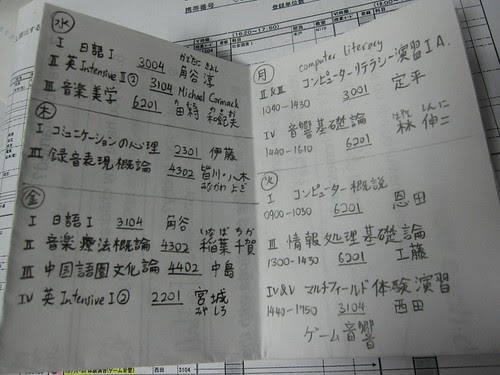 水
かどたに きよし
I 日語I 3004 角谷淳
II 英Intensive I② 3104 Michael Cormack
III 音楽美学 6201
木
I コミュニケーションの心理 2301 伊藤
III 録音表現概論 4302 皆川・八木
みながわ よぎ
金
I 日語I 3104 角谷
いなば ちか
II 音楽療法概論 4302 稲葉千賀
III 中国語圏文化論 4402 中島
IV 英Intensive I② 2201 宮城
みやしろ
月
computer literacy
II&III コンピューターリテラシー演習IA.
1040-1430 3001 定平
はやし しんじ
IV 音響基礎論 林伸二
1440-1610 6201
火
I コンピューター概説
0900-1030 6201 恩田
III 情報処理基礎論
1300-1430 6201 工藤
IV&V マルチフィールド体験演習
1440-1750 3104 西田
ゲーム音響
携帯番号
登録単位数